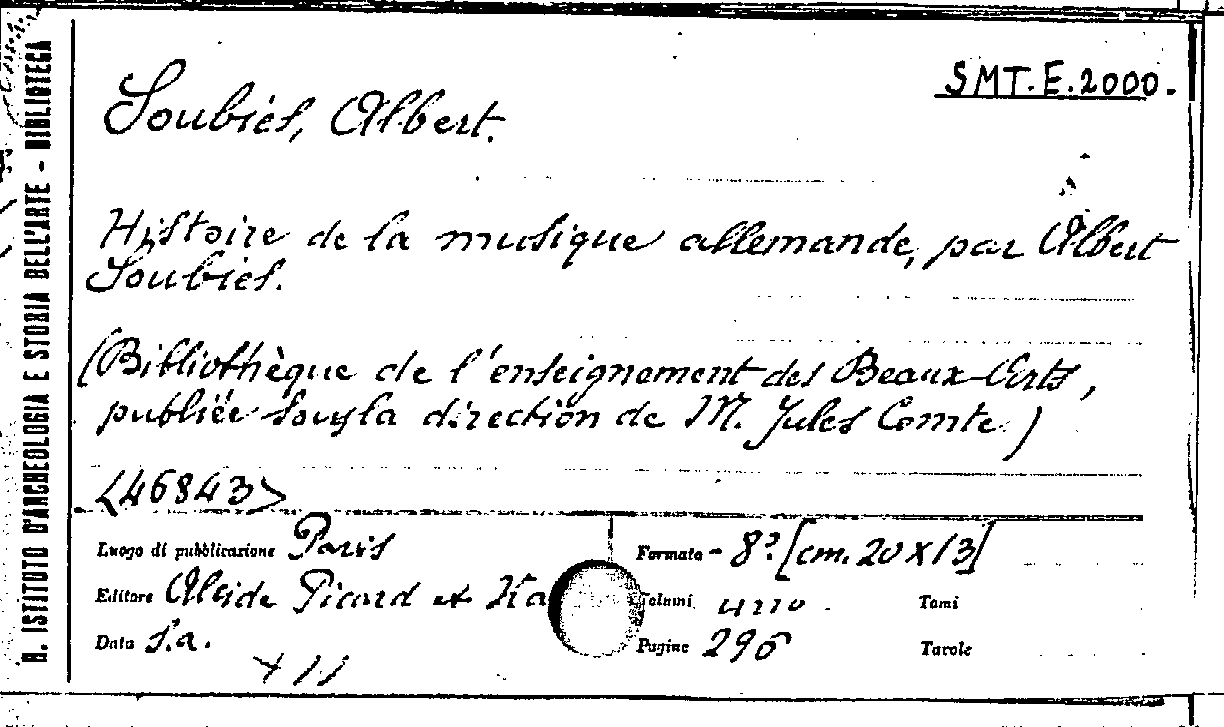 R. ISTITUTO D'ARCHEOLOGIA E STORIA DELL'ARTE - BIBLIOTECA
SMT.E.2000.
Soubies, Albert.
Histoire de la musique allemande, par Albert
Soubies.
(Bibliothèque de l'enseignement des Beaux-Arts,
publiée sous la direction de M. Jules Comte.)
<46843>
Luogo di pubblicazione Paris
Formato - 8º [cm. 20 x 13]
Editore Alcide Picard et Ka
Volumi uno. Tomi
Data s.a.
Pagine 296 Tavole